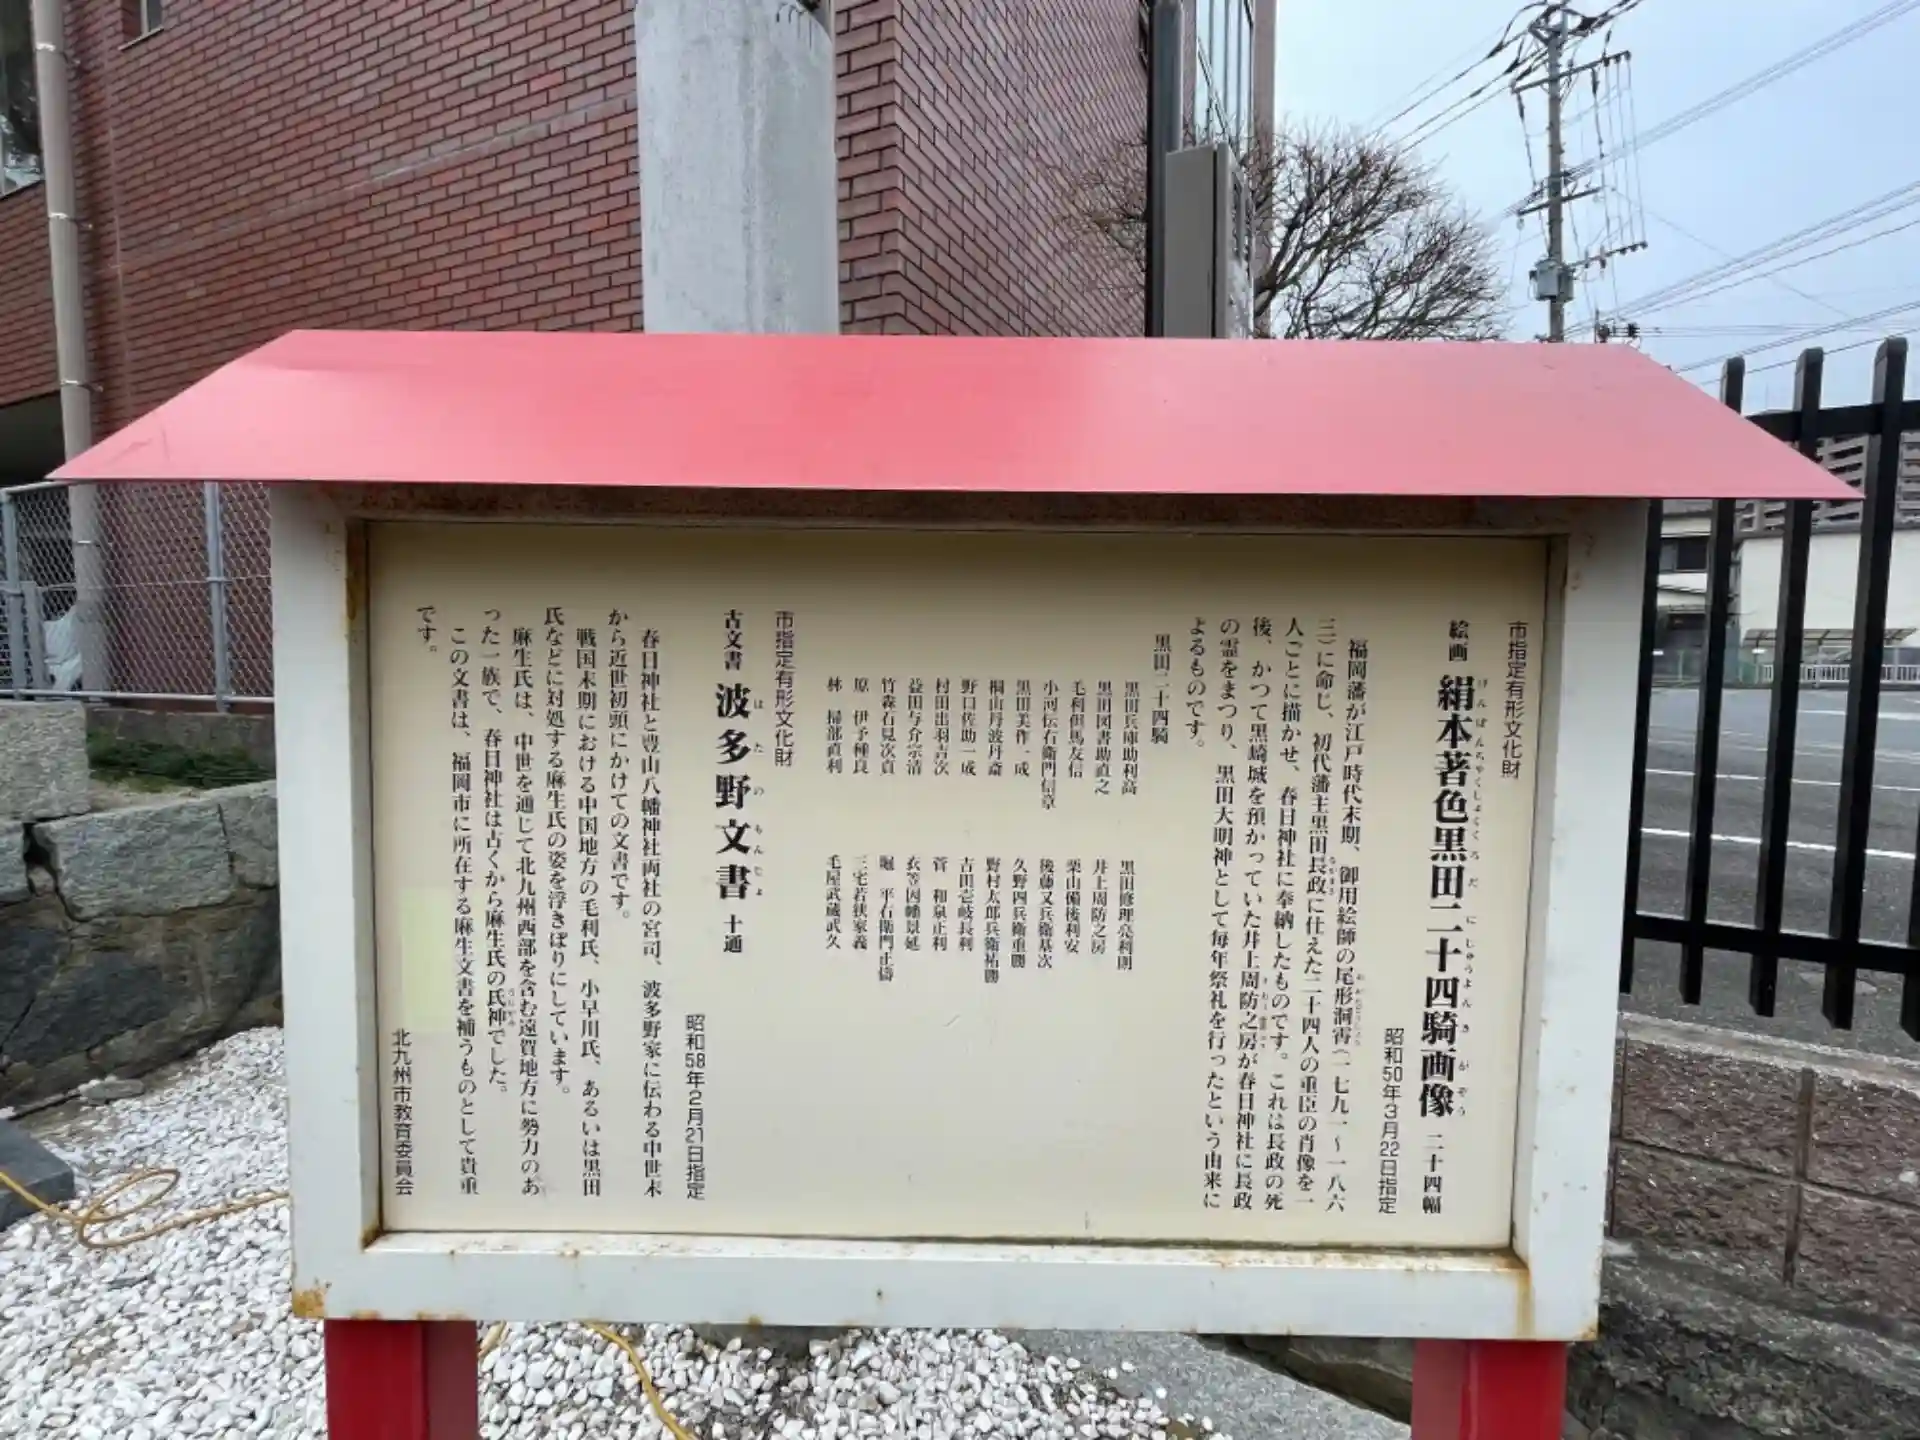 市指定有形文化財
絵画 絹本著色黒田二十四騎画像 二十四幅
けんぽんちゃくしょくくろだにじゅうよんきがぞう
昭和50年3月22日指定
福岡藩が江戸時代末期、御用絵師の尾形洞霄(一七九一~一八六
三)に命じ、初代藩主黒田長政に仕えた二十四人の重臣の肖像を一
人ごとに描かせ、春日神社に奉納したものです。これは長政の死
後、かつて黒崎城を預かっていた井上周防之房が春日神社に長政
の霊をまつり、黒田大明神として毎年祭礼を行ったという由来に
よるものです。
黒田二十四騎
黒田兵庫助利高
黒田図書助直之
毛利但馬友信
小河伝右衛門信章
黒田美作一成
桐山丹波丹斎
野口佐助一成
村田出羽吉次
益田与介宗清
竹森石見次貞
原 伊予種良
林 掃部直利
黒田修理亮利則
井上周防之房
栗山備後利安
後藤又兵衛基次
久野四兵衛重勝
野村太郎兵衛祐勝
吉田壱岐長利
菅 和泉正利
衣笠因幡景延
堀 平右衛門正儔
三宅若狭家義
毛屋武蔵武久
市指定有形文化財
古文書 波多野文書 十通
はたのもんじょ
昭和58年2月21日指定
春日神社と豊山八幡神社両社の宮司、波多野家に伝わる中世末
から近世初頭にかけての文書です。
戦国末期における中国地方の毛利氏、小早川氏、あるいは黒田
氏などに対処する麻生氏の姿を浮きぼりにしています。
麻生氏は、中世を通じて北九州西部を含む遠賀地方に勢力のあ
った一族で、春日神社は古くから麻生氏の氏神でした。
この文書は、福岡市に所在する麻生文書を補うものとして貴重
です。
北九州市教育委員会